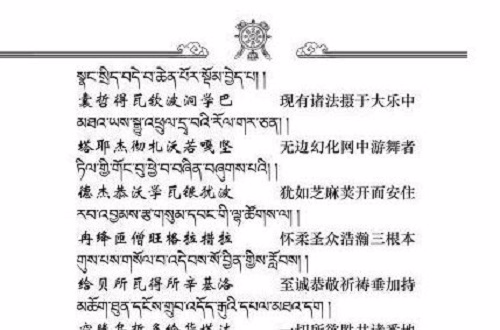 སྣང་སྲིད་བདེ་བ་ཆེན་པོར་སྡོམ་བྱེད་པ། །
囊哲得瓦钦波洞学巴 现有诸法摄于大乐中
མཐའ་ཡས་སྒྱུ་འཕྲུལ་དྲྭ་བའི་རོལ་གར་ཅན། །
塔耶杰彻札沃若嘎坚 无边幻化网中游舞者
ཏིལ་གྱི་གོང་བུ་ཕྱེ་བ་བཞིན་བཞུགས་པའི། །
德杰恭沃学瓦银犹波 犹如芝麻荚开而安住
རབ་འབྱམས་རྩ་གསུམ་དབང་གི་ལྷ་ཚོགས་ལ། །
冉绛匝僧旺格拉措拉 怀柔圣众浩瀚三根本
གུས་པས་གསོལ་བ་འདེབས་སོ་བྱིན་གྱིས་རློབས། །
给贝所瓦得所辛基洛 至诚恭敬祈祷垂加持
མཆོག་ཐུན་དངོས་གྲུབ་འདོད་རྒུའི་དཔལ་མཐའ་དག །